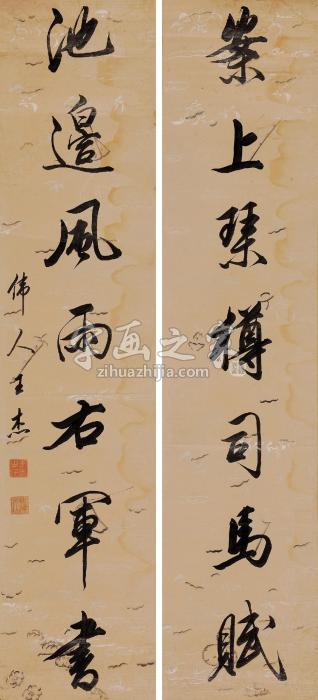 案上琴樽司馬賦
池邊風雨右軍書
偉人王杰
字画之家
zihuazhijia.com